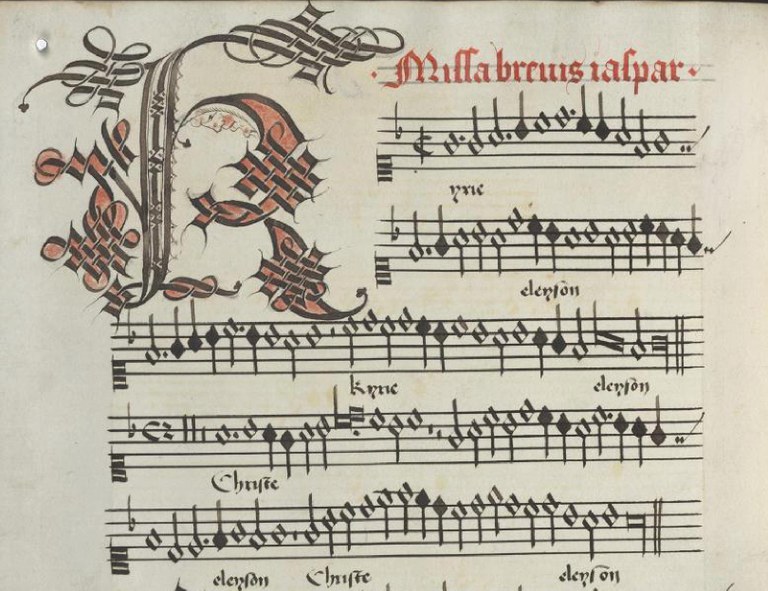 Missa breuis iaspar
Kyrie
eleysōn
Kyrie eleysōn
Christe
eleyson Christe eleysōn